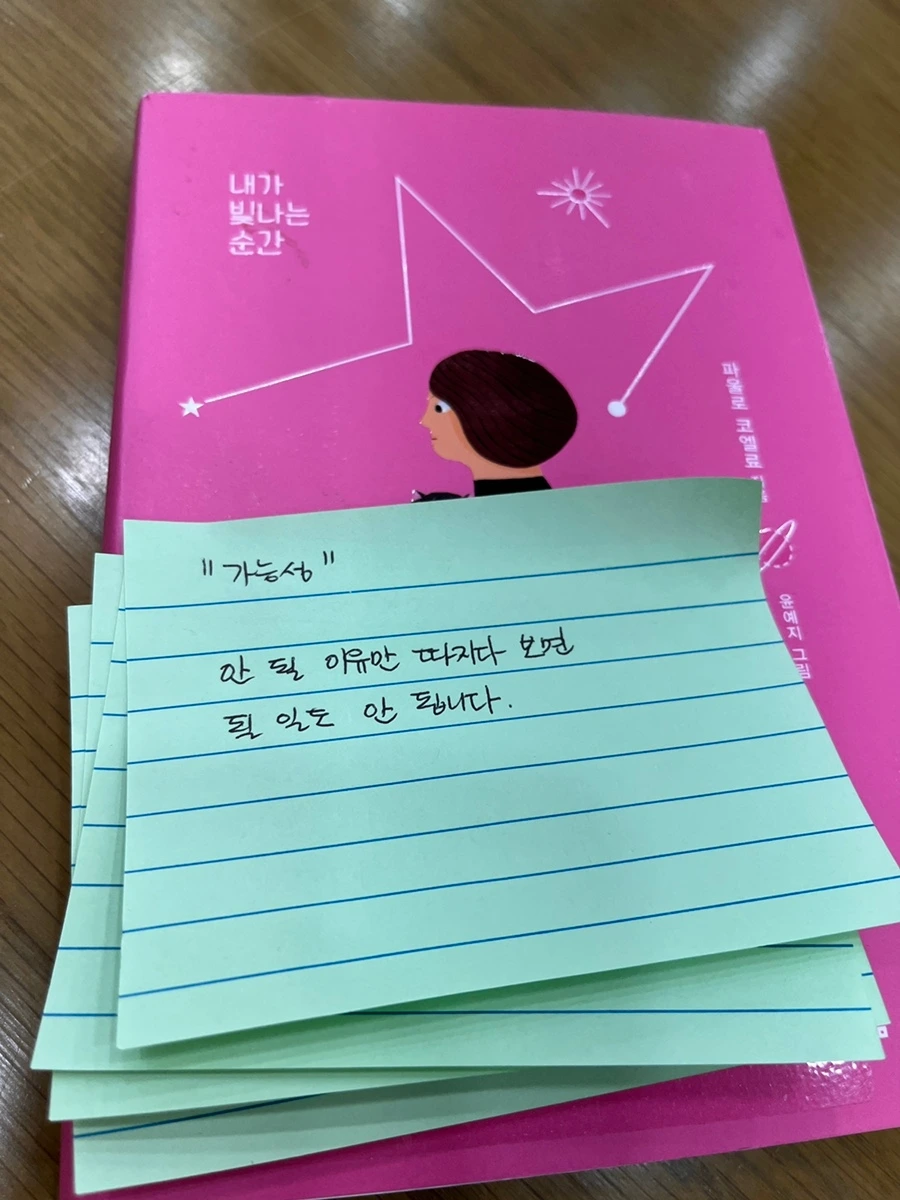 내가
빛나는
순간
파울로 코엘료
윤예지 그림
"가능성"
안 될 이유만 따지다 보면
될 일도 안 됩니다.